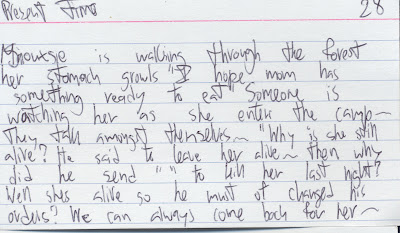 Present Time 28
is walking through the forest
her stomach growls "I hope mom has
something ready to eat" Someone is
watching her as she enter the camp~
They talk amongst themselves~ "Why is she still
alive? He said to leave her alive~ then why
did he send " " to kill her last night?
Well shes alive so he must of changed his
orders? We can always come back for her~